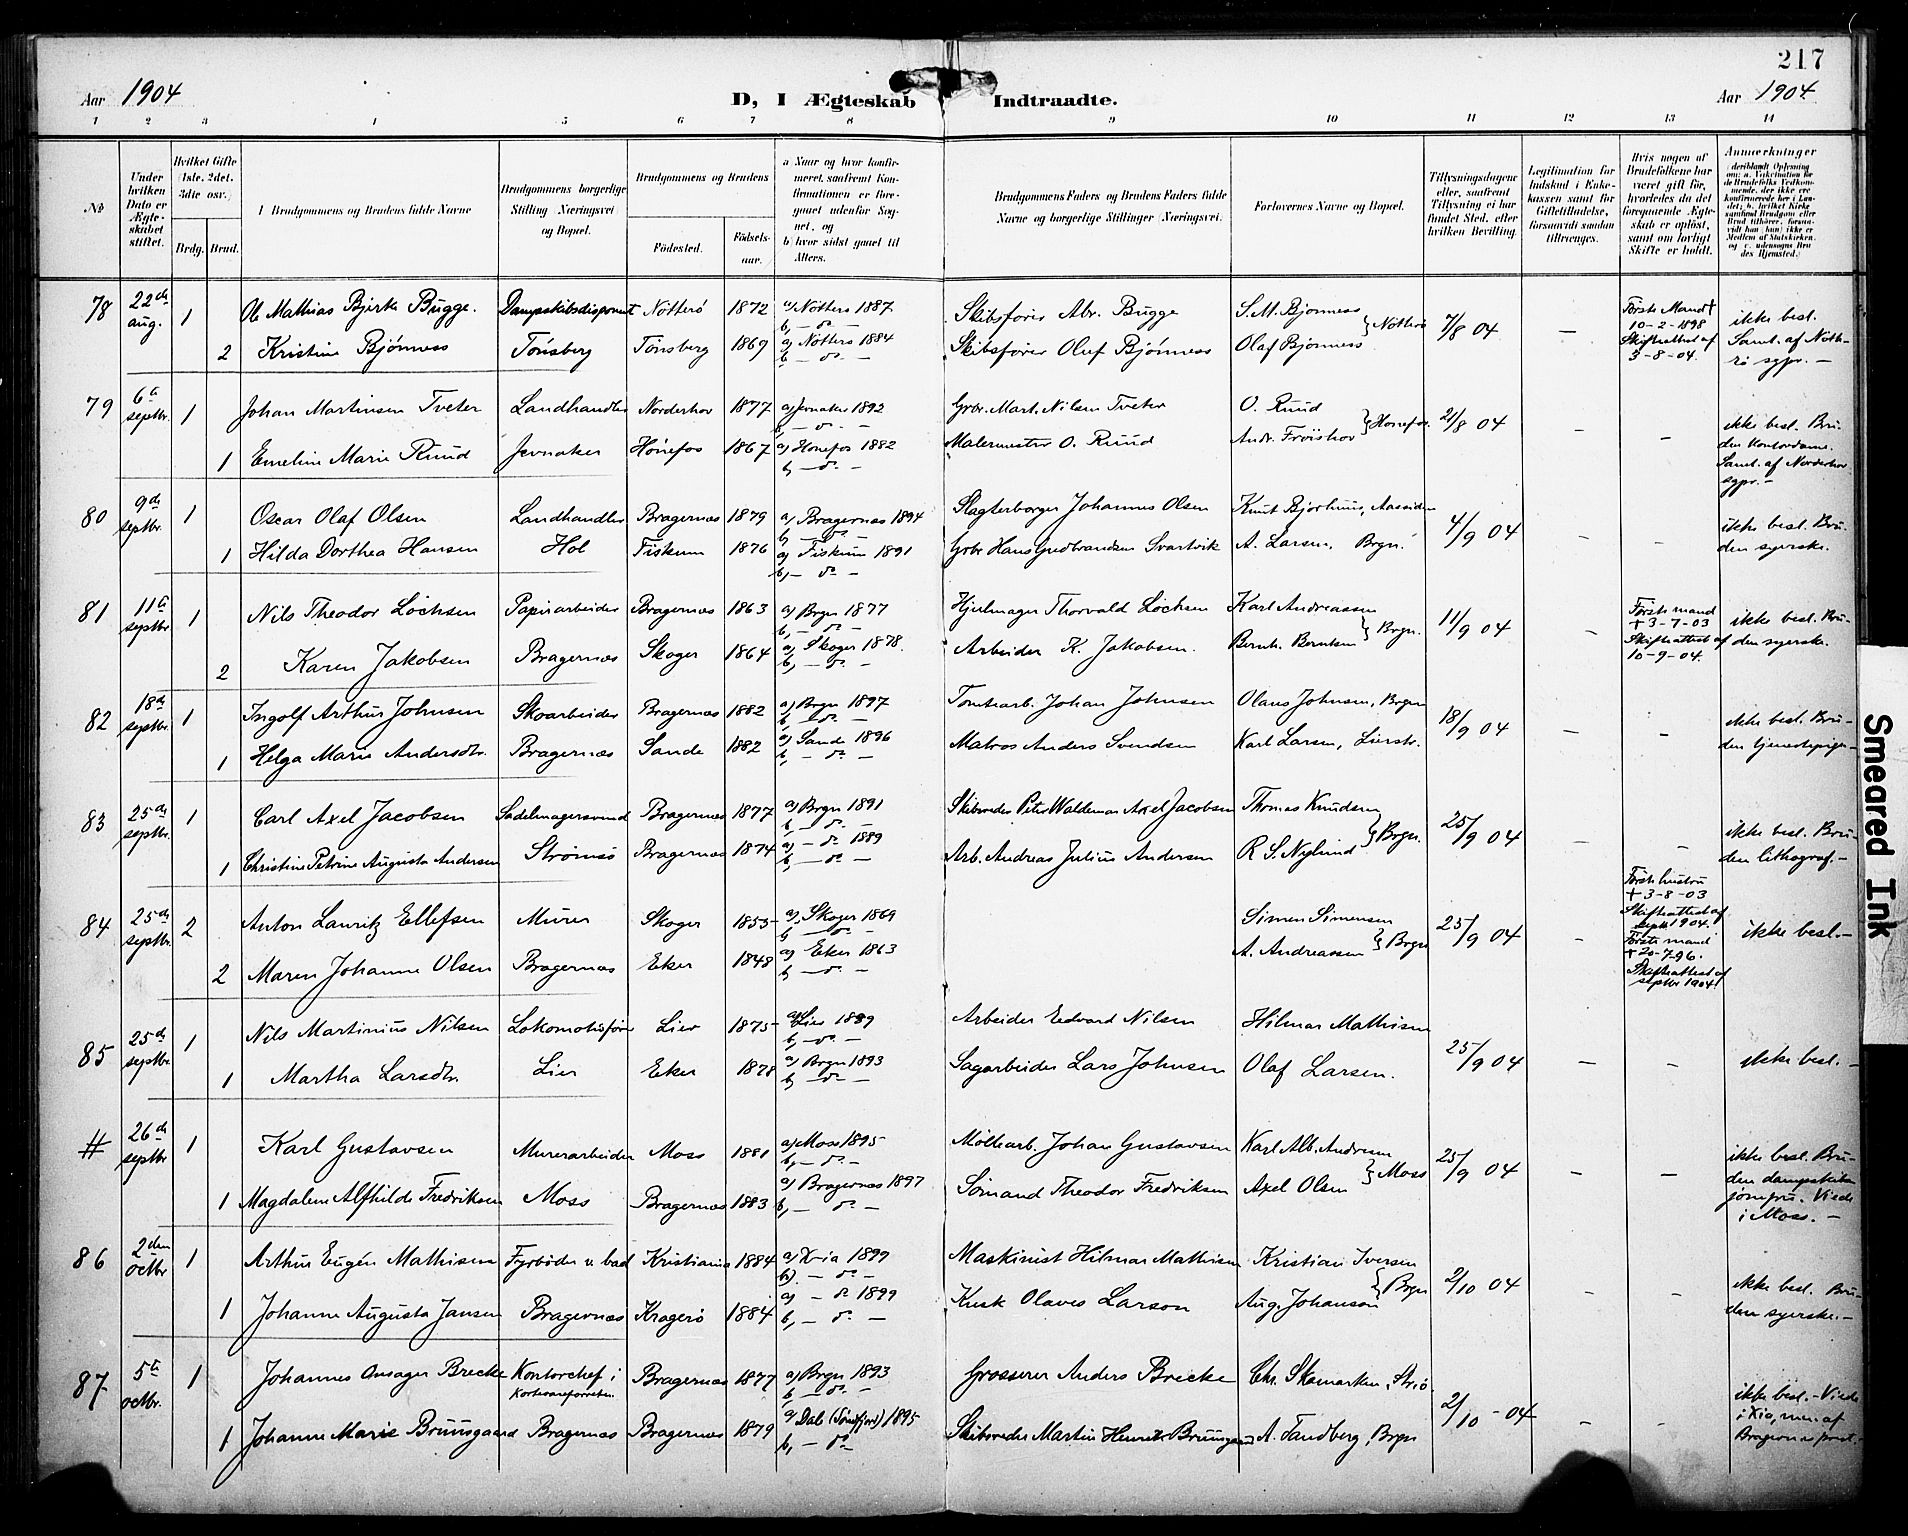 217
Aar 1904
D, I Ægteskab Indtraadte.
Aar 1904.
1 2 3 4 5 6 7 8 9 10 11 12 13 14
№
Under hvilken Dato er Ægteskabet stiftet.
Hvilket Gifte (1ste, 2det, 3die osv.)
Brdg. Brud.
Brudgommens og Brudens fulde Navne
Brudgommens borgerlige Stilling (Næringsvei) og Bopæl.
Brudgommens og Brudens
Fødested.
Fødselsaar.
a Naar og hvor konfirmeret, saafremt Konfirmationen er foregaaet udenfor Sognet, og
b) hvor sidst gaaet til Alters.
Brudgommens Faders og Brudens Faders fulde Navne og borgerlige Stillinger (Næringsvei).
Forlovernes Navne og Bopæl.
Tillysningsdagene eller, saafremt Tillysning ei har fundet Sted, efter hvilken Bevilling.
Legitimation for Indskud i Enkekassen samt for Giftetilladelse, forsaavidt saadan tiltrænges.
Hvis nogen af Brudefolkene har været gift før, hvorledes da det foregaaende Ægteskab er opløst, samt om lovligt Skifte er holdt.
Anmærkninger
78 22de aug. 1 Ole Mathias Bjerke Bugge. Dampskibsdisponent Nötterö 1872 a) Nötterö 1887 b, - do - Skibsfører Abr. Bugge S. M. Bjønness } Nötterö 7/8 04 - Første Mand † 10-2-1898 Skifteattest af 3-8-04. ikke besl. Saml. af Nötterö sgpr. -
2 Kristine Bjønness Tønsberg Tønsberg 1869 a) Nötterö 1884 b - do - Skibsfører Oluf Bjønness Olaf Bjønness
79 6te septbr. 1 Johan Martinsen Tveter Landhandler Norderhov 1877 a) Jevnaker 1892 b, - do - Gbr. Mart. Nilsen Tveter O. Ruud } Hønefos. 21/8 04 - - ikke besl. Bruden kontordame. Saml. af Norderhov sgpr. -
1 Emeline Marie Ruud Jevnaker Hønefos 1867 a) Hønefos 1882 b, - do - Malermester O. Ruud Andr. Frøishov
80 9de septbr. 1 Oscar Olaf Olsen Landhandler Bragernæs 1879 a) Bragernæs 1894 b, - do - Slagterborger Johannes Olsen Knut Bjorhuus, Aassiden 4/9 04 - - ikke besl. Bruden syerske.
1 Hilda Dorthea Hansen Hol Fiskum 1876 a) Fiskum 1891 b, - do - Gbr Hans Gudbrandsen Svartvik A. Larsen, Brgn.
81 11te septbr 1 Nils Theodor Løchsen Papirarbeider Bragernæs 1863 a) Brgn 1877 b, - do - Hjulmager Thorvald Løchsen Karl Andreassen } Brgn. 11/9 04 - Første mand † 3-7-03 Skifteattest af 10-9-04. ikke besl. Bruden syerske.
2 Karen Jakobsen Bragernæs Skoger 1864 a) Skoger 1878. b, - do - Arbeider K. Jakobsen. Bernh. Berntsen
82 18de septbr. 1 Ingolf Arthur Johnsen Skoarbeider Bragernæs 1882 a) Brgn 1897 b, - do - Tomtearb. Johan Johnsen Olaus Johnsen, Brgn 18/9 04 - - ikke besl. Bruden tjenestepige -
1 Helga Marie Andersdtr. Bragernæs Sande 1882 a) Sande 1896 b, - do - Matros Anders Svendsen Karl Larsen, Lierstr.
83 25de septbr. 1 Carl Axel Jacobsen Sadelmagersvend Bragernæs 1877 a) Brgn 1891 b, - do - Skibsreder Peter Waldemar Axel Jacobsen Thomas Knudsen } Brgn. 25/9 04 - - ikke besl. Bruden lithograf. -
1 Christine Petrine Augusta Andersen Strømsø Bragernæs 1874 a) - do 1889 b, - do - Arb. Andreas Julius Andersen R. S. Nylund
84 25de septbr. 2 Anton Lauritz Ellefsen Murer Skoger 1855 a) Skoger 1869 b - do - Simen Simensen } Brgn 25/9 04 - Første hustru † 3-8-03 Skifteattest af septr 1904. Første mand † 20-7-96. Skifteattest af septbr 1904. ikke besl. -
2 Maren Johanne Olsen Bragernæs Eker 1848 a) Eker 1863 b, - do - A. Andreassen
85 25de septbr. 1 Nils Martinius Nilsen Lokomotivfører Lier 1875 a) Lier 1889 b, - do - Arbeider Edvard Nilsen Hilmar Mathisen 25/9 04 - - ikke besl. -
1 Martha Larsdtr. Lier Eker 1878 a) Brgn 1893 b, - do - Sagarbeider Lars Johnsen Olaf Larsen.
# 26de septbr 1 Karl Gustavsen Murerarbeider Moss 1881 a) Moss 1895 b, - do - Møllearb. Johan Gustavsen Karl Alb. Andresen } Moss 25/9 04 - - ikke besl. Bruden dampskibsjomfru. Viede i Moss. -
1 Magdalene Alfhilde Fredriksen Moss Bragernæs 1883 a) Bragernæs 1897 b, - do - Sømand Theodor Fredriksen Axel Olsen
86 2den octbr 1 Arthur Eugén Mathisen Fyrbøder v. bad Kristiania 1884 a) Kria 1899 b). - do - Maskinist Hilmar Mathisen Kristian Iversen } Brgn 2/10 04 - - ikke besl. Bruden syerske. -
1 Johanne Augusta Jansen Bragernæs Kragerö 1884 a) - do 1899 b, - do - Kusk Olaves Larson Aug. Johanson
87 5te octbr. 1 Johannes Ansager Brecke Kontorchef i Bragernæs 1877 a) Brgn 1893 b, - do - Grosserer Anders Brecke Chr. Skomarken, Strø. 2/10 - 04 - - ikke besl. - Viede i Kia, men af Bragernæs præst. -
1 Johanne Marie Bruusgaard Bragernæs Bragernæs 1879 a) Dale (Søndfjord) 1895 b, - do Skibsreder Martin Henrik Bruusgaard A. Tandberg, Brgn
Smeared Ink